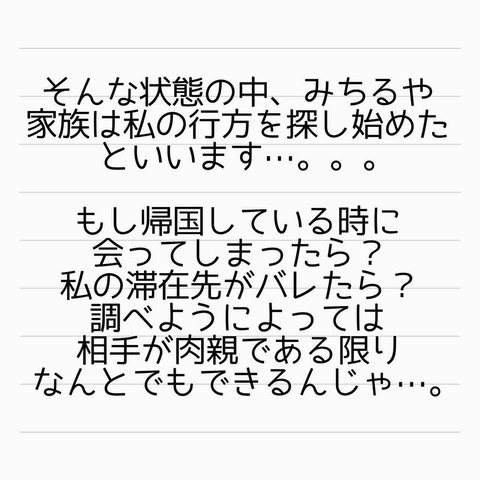 そんな状態の中、みちるや
家族は私の行方を探し始めた
といいます…。。。
もし帰国している時に
会ってしまったら？
私の滞在先がバレたら？
調べようによっては
相手が肉親である限り
なんとでもできるんじゃ…。